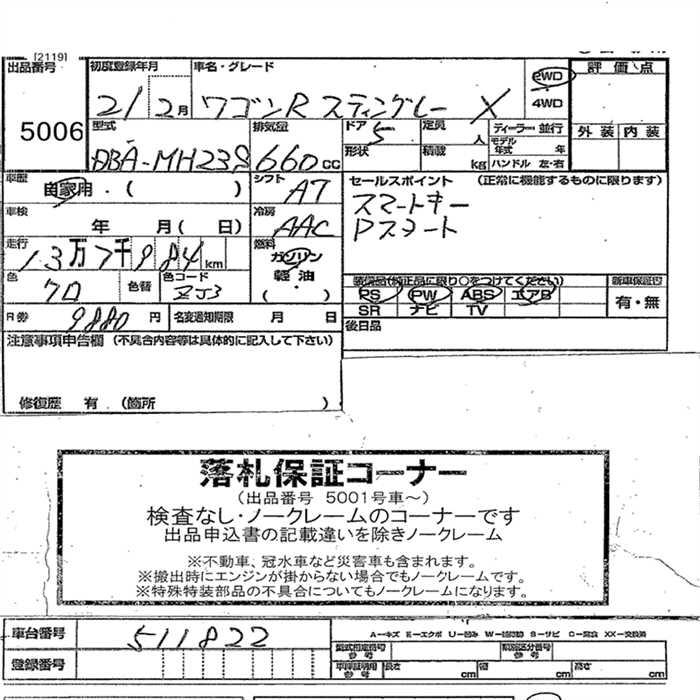 [2119]
出品番号 5006
初度登録年月 21 2月
車名・グレード ワゴンR スティングレー X
2WD
4WD
評価点
外装 内装
型式 DBA-MH23S
排気量 660cc
ドア 5
形状
定員 人
積載 kg
ディーラー・並行
モデル年式 年
ハンドル 左・右
車歴 自家用・( )
シフト AT
車検 年 月( 日)
冷房 AAC
走行 13万7千984km
燃料 ガソリン
軽油
( ・ )
色 クロ
色替
色コード ZJ3
R券 9880円
名変通知期限 月 日
セールスポイント (正常に機能するものに限ります)
スマートキー
Pスタート
装備品(純正品に限り○をつけてください)
PS PW ABS エアB
SR ナビ TV
新車保証書
有・無
後日品
注意事項申告欄 (不具合内容等は具体的に記入して下さい)
修復歴 有 (箇所 )
落札保証コーナー
(出品番号 5001号車～)
検査なし・ノークレームのコーナーです
出品申込書の記載違いを除きノークレーム
※不動車、冠水車など災害車も含まれます。
※搬出時にエンジンが掛からない場合でもノークレームです。
※特殊特装部品の不具合についてもノークレームになります。
車台番号 511822
登録番号
A-キズ E-エクボ U-凹み W-補修跡 S-サビ C-腐食 XX-交換済
型式指定番号
参考
類別区分番号
参考
車検証明用
参考
長さ cm 幅 cm 高さ cm